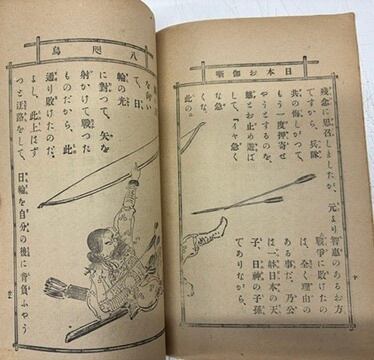 日本お伽噺
残念に思召しましたが、元より智恵のあるお方
ですから、兵隊
共の悔しがつて、
もう一度押寄せ
やうとするのを、
とお止め遊ば
して、『イヤ急く
な急
くな。
此の
戰爭に敗けたの
は、全く理由の
ある事だ、乃公
は一躰日本の天
子、日神の子孫
でありながら、
八咫烏
て、日
輪の光
に對つて、矢を
射かけて戰つた
ものだから、此
通り敗けたのだ、
よし、此上はず
つと迂路をして、日輪を自分の後に背負ふやう